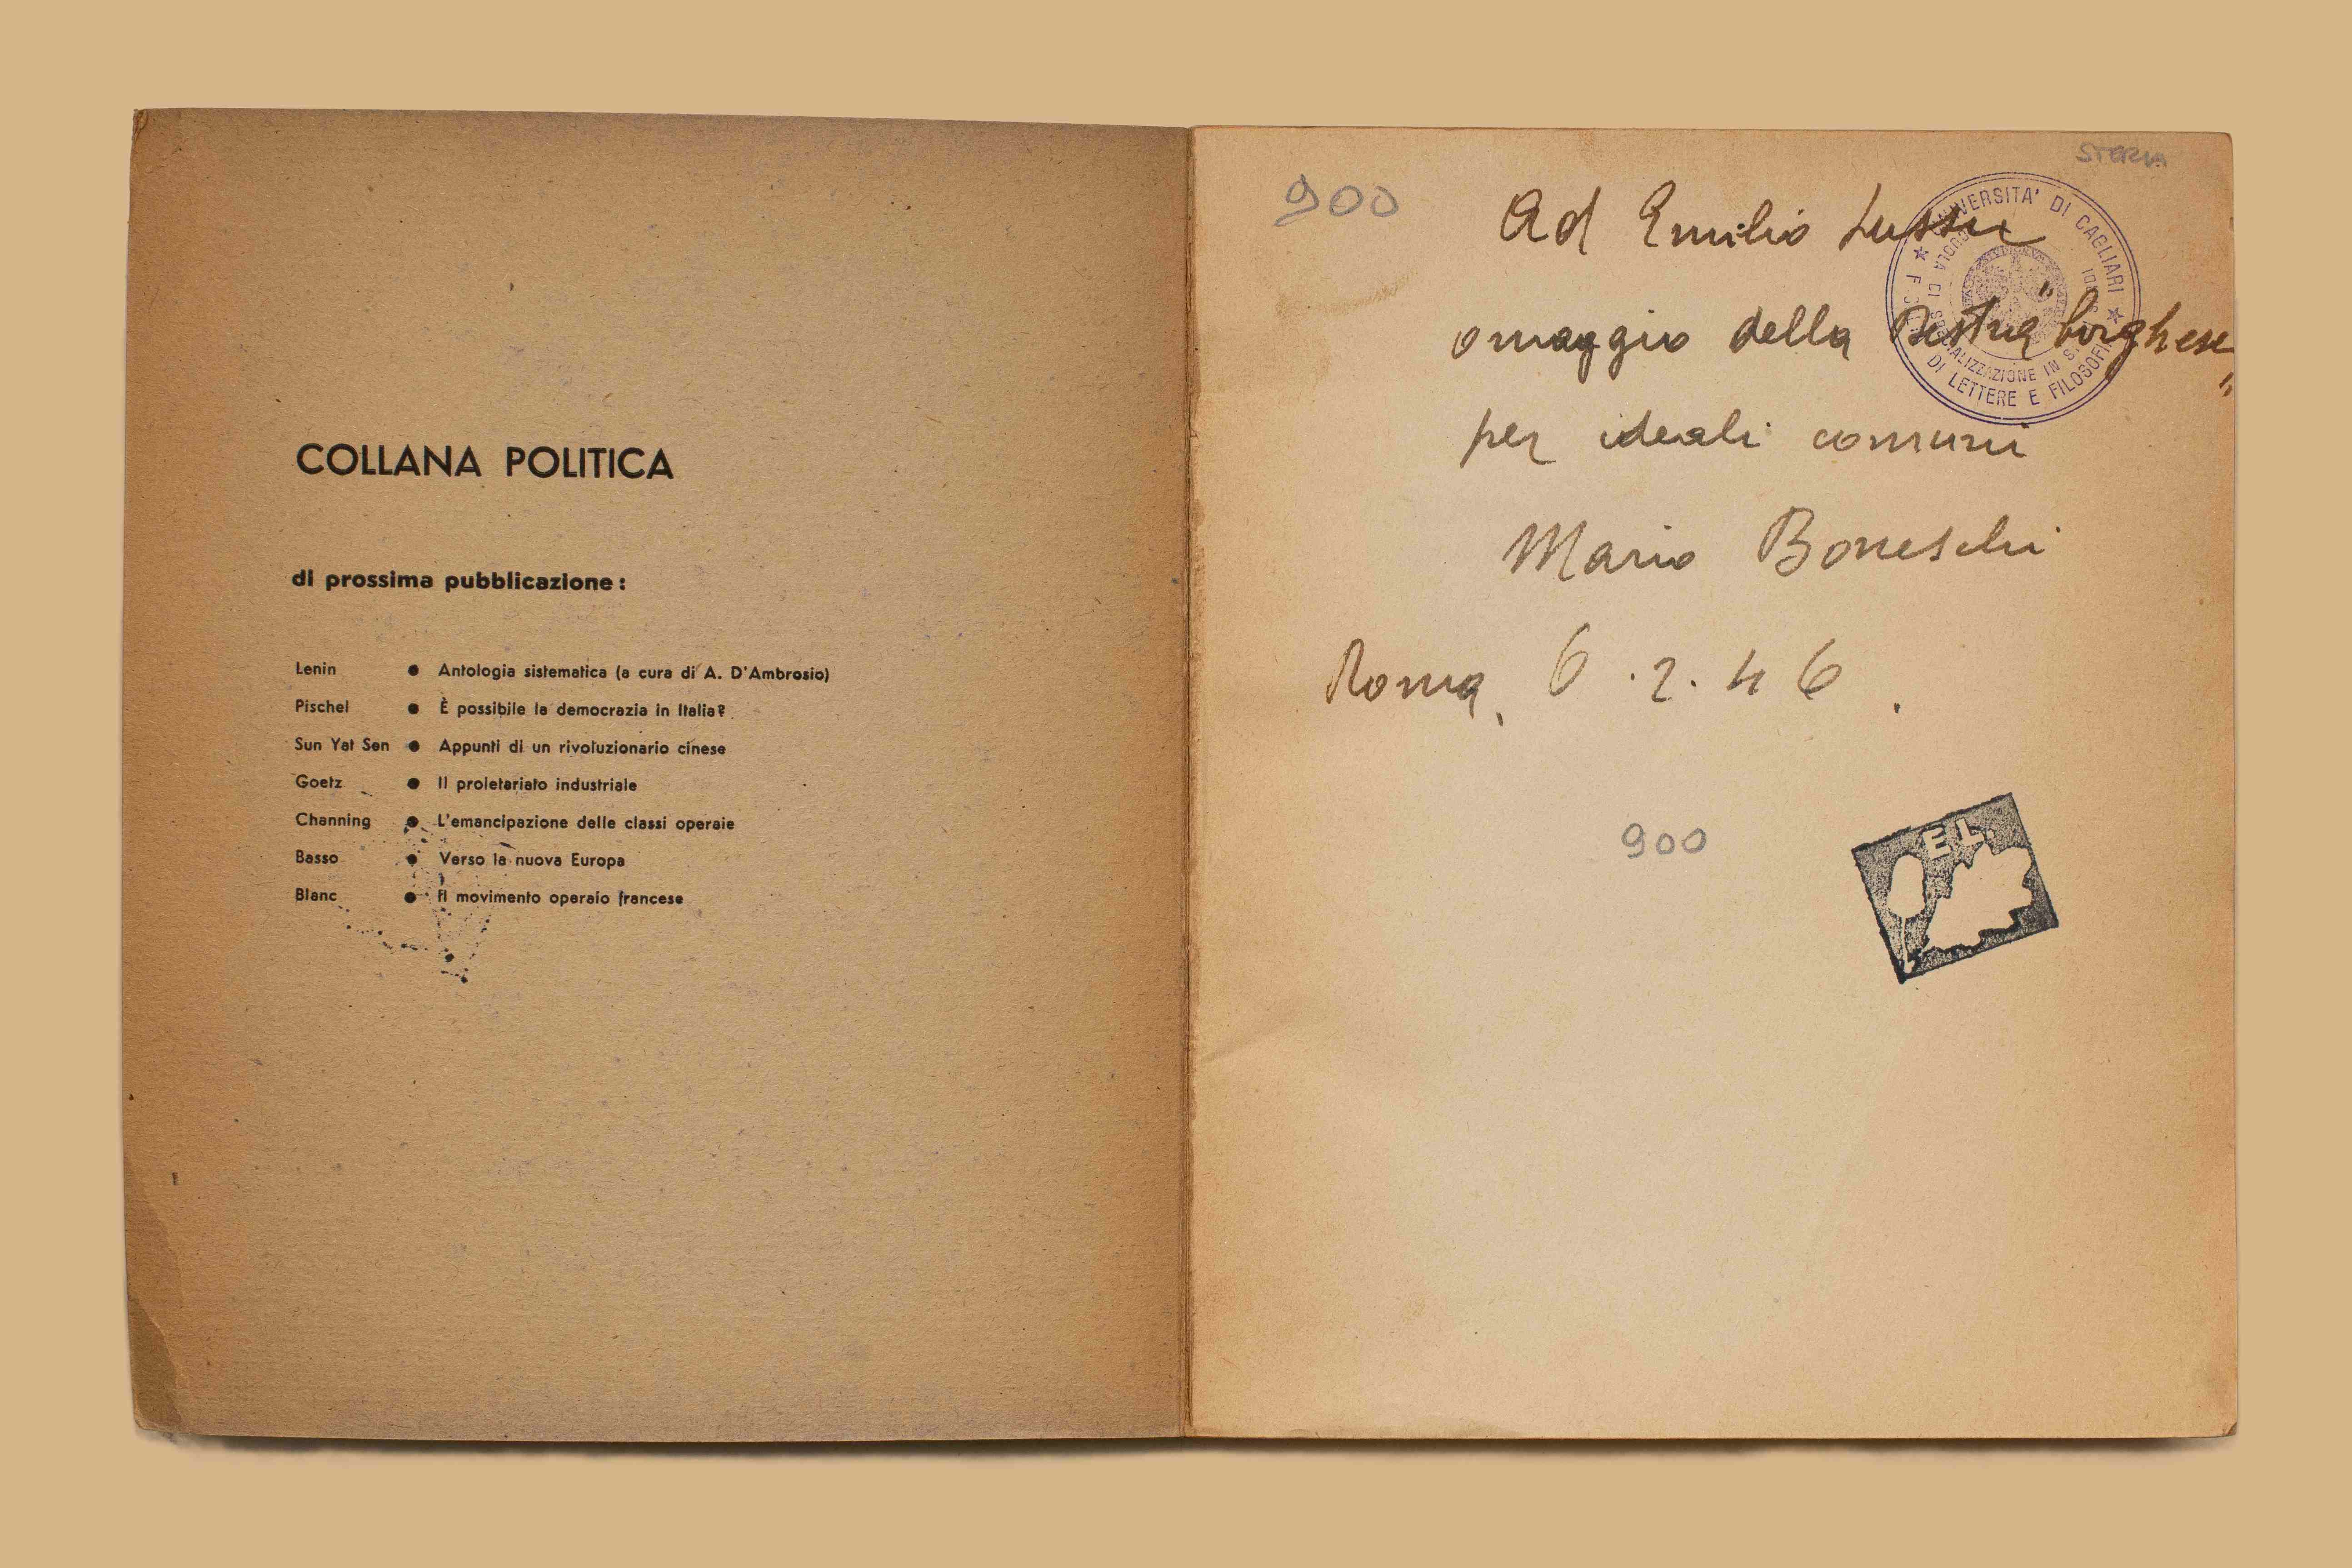 COLLANA POLITICA
di prossima pubblicazione:
Lenin ● Antologia sistematica (a cura di A. D'Ambrosio)
Pischel ● È possibile la democrazia in Italia?
Sun Yat Sen ● Appunti di un rivoluzionario cinese
Goetz ● Il proletariato industriale
Channing ● L'emancipazione delle classi operaie
Basso ● Verso la nuova Europa
Blanc ● Il movimento operaio francese
900
Ad Emilio Lussu
omaggio della destra "borghese"
per ideali comuni
Mario Boneschi
Roma, 6.2.46.
UNIVERSITA' DI CAGLIARI
DI LETTERE E FILOSOFIA
SCUOLA DI SPECIALIZZAZIONE IN
900
E.L.